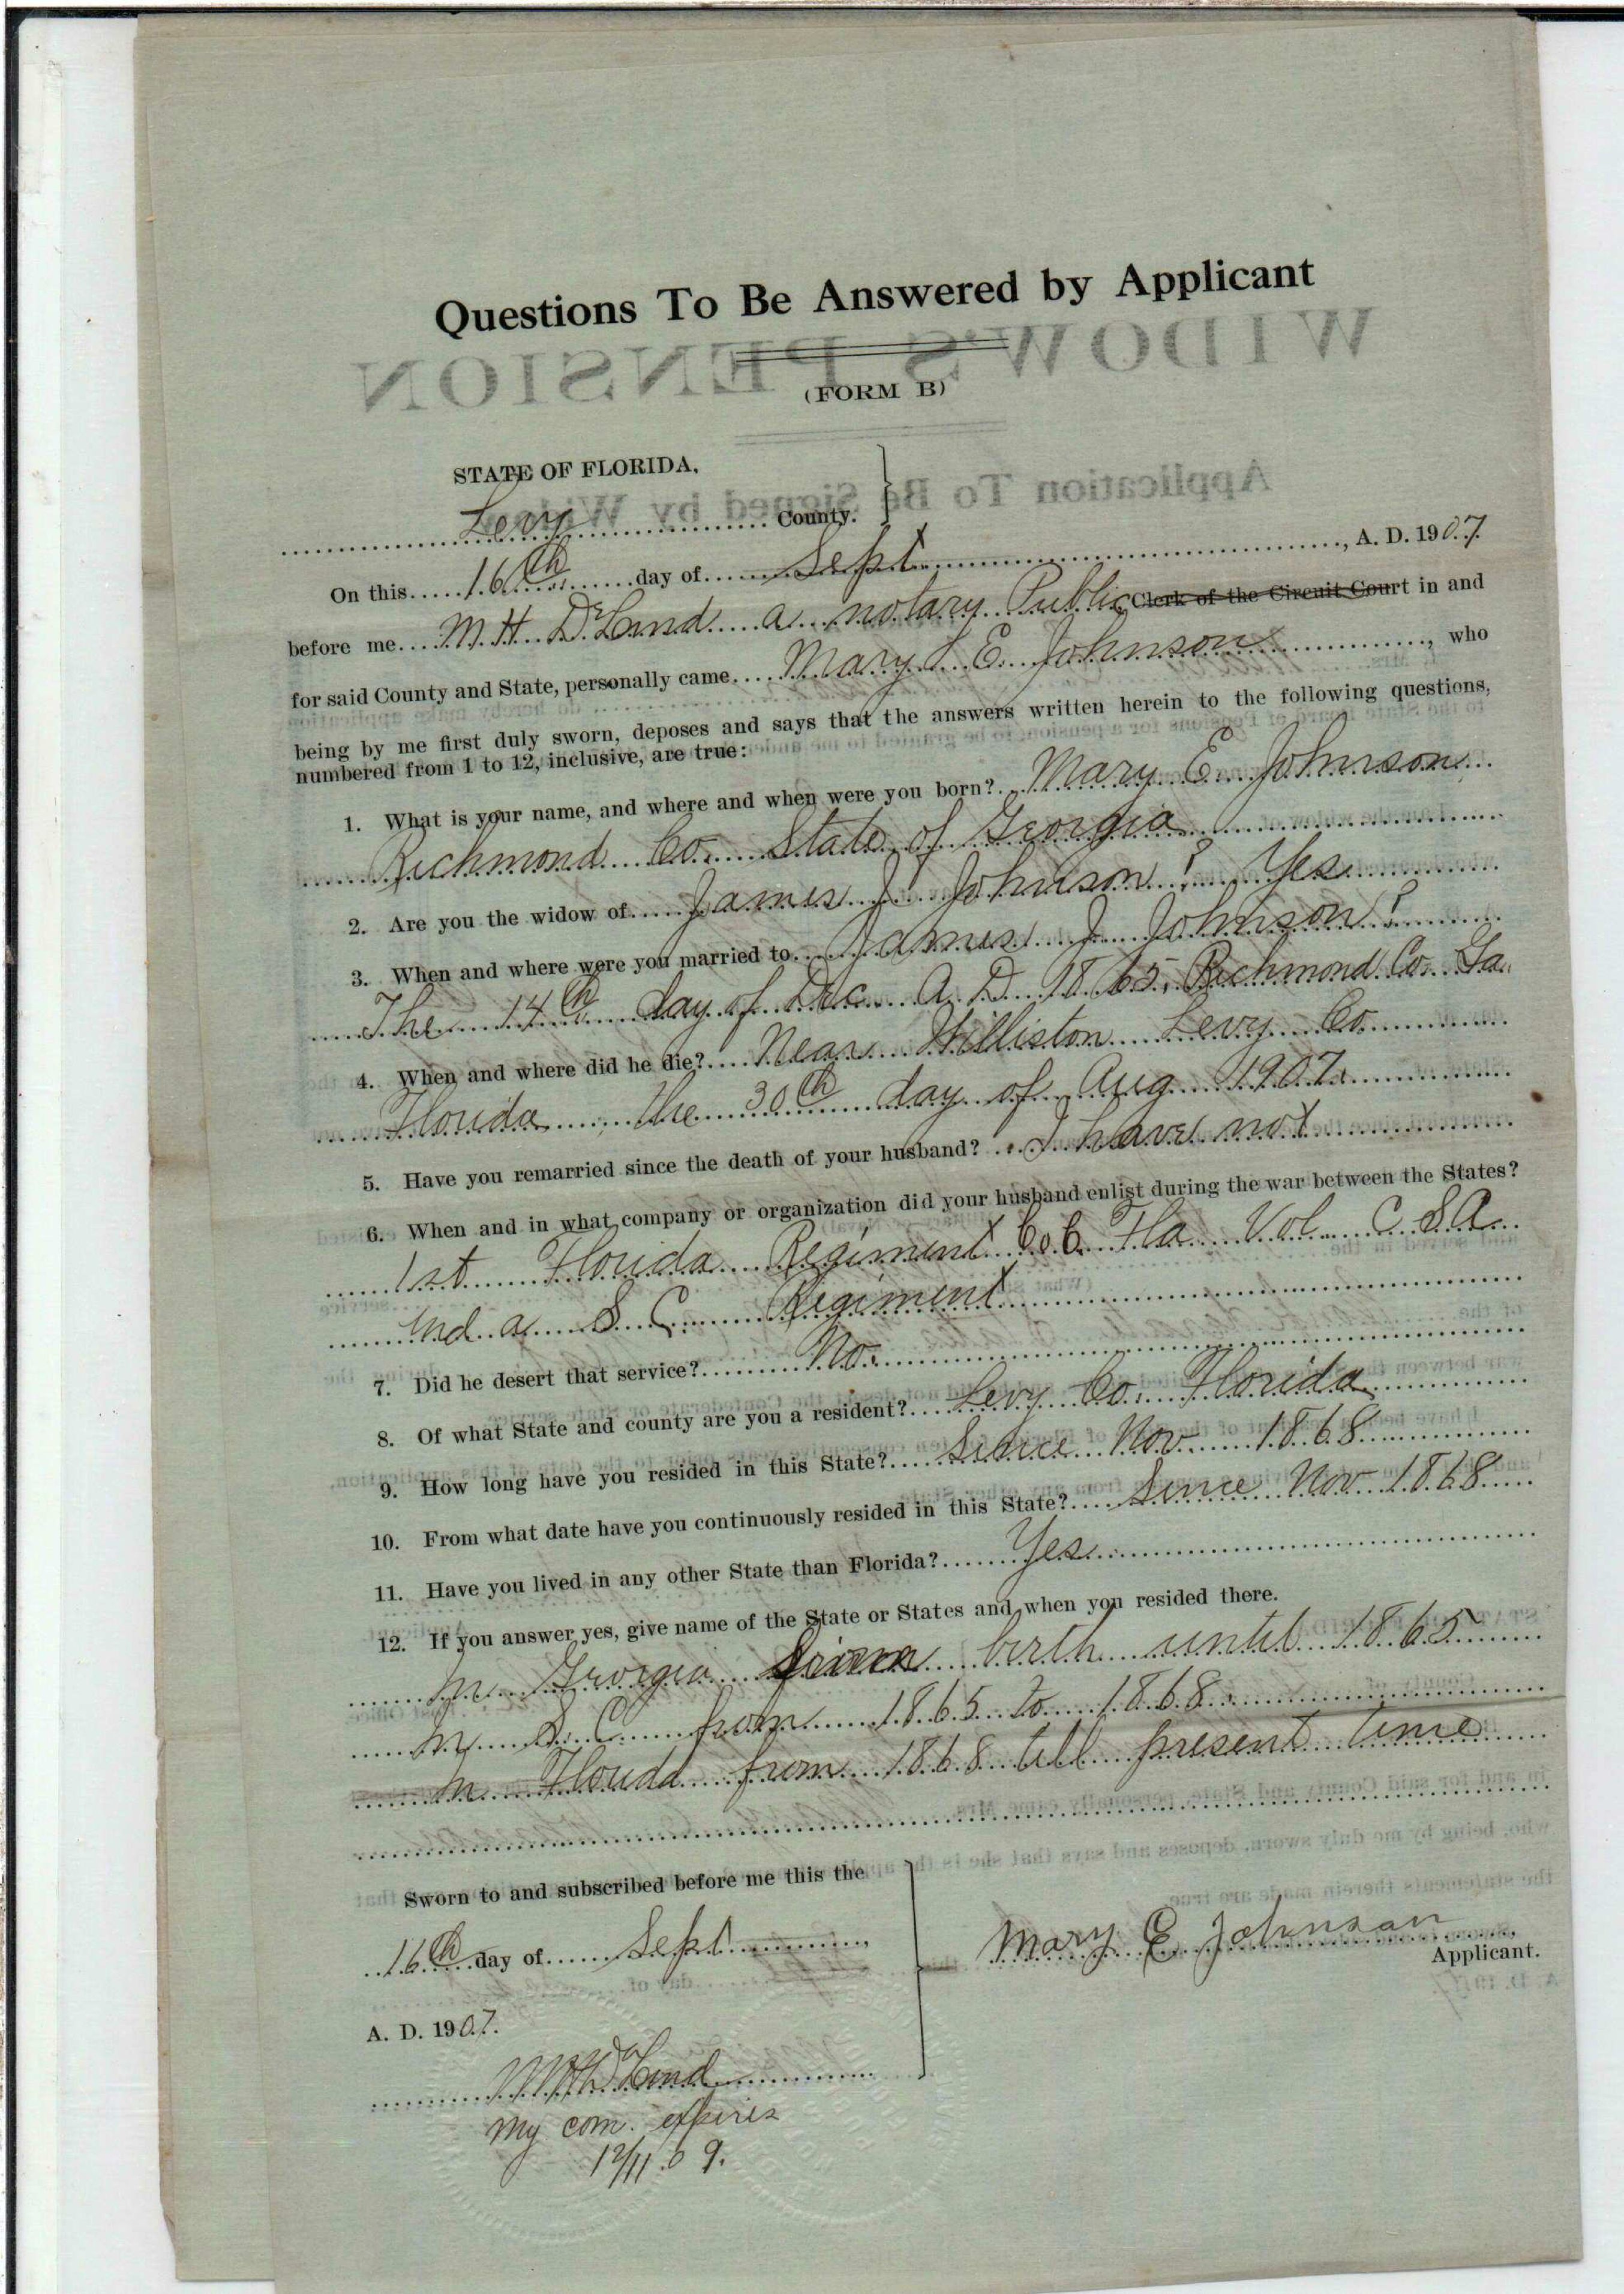 Questions To Be Answered by Applicant
WIDOW'S PENSION
(FORM B)
Application To Be Signed by Widow
STATE OF FLORIDA,
Levy County.
On this 16th day of Sept, A. D. 1907
before me M. H. DeLand a notary Public, Clerk of the Circuit Court in and
for said County and State, personally came Mary E. Johnson, who
being by me first duly sworn, deposes and says that the answers written herein to the following questions,
numbered from 1 to 12, inclusive, are true:
1. What is your name, and where and when were you born? Mary E. Johnson
Richmond Co. State of Georgia
2. Are you the widow of James J. Johnson? Yes
3. When and where were you married to James J. Johnson?
The 14th day of Dec. A. D. 1865, Richmond Co. Ga.
4. When and where did he die? Near Williston Levy Co
Florida, the 30th day of Aug 1907.
5. Have you remarried since the death of your husband? I have not
6. When and in what company or organization did your husband enlist during the war between the States?
1st Florida Regiment Co C Fla Vol C. S. A.
and a S. C. Regiment
7. Did he desert that service? No.
8. Of what State and county are you a resident? Levy Co. Florida
9. How long have you resided in this State? Since Nov 1868
10. From what date have you continuously resided in this State? Since Nov 1868
11. Have you lived in any other State than Florida? Yes
12. If you answer yes, give name of the State or States and when you resided there.
In Georgia birth until 1865
In S. C. from 1865 to 1868
In Florida from 1868 till present time
Sworn to and subscribed before me this the
16th day of Sept,
Mary E Johnson,
Applicant.
A. D. 1907.
M H DeLand
My com. expires
12/11.09.